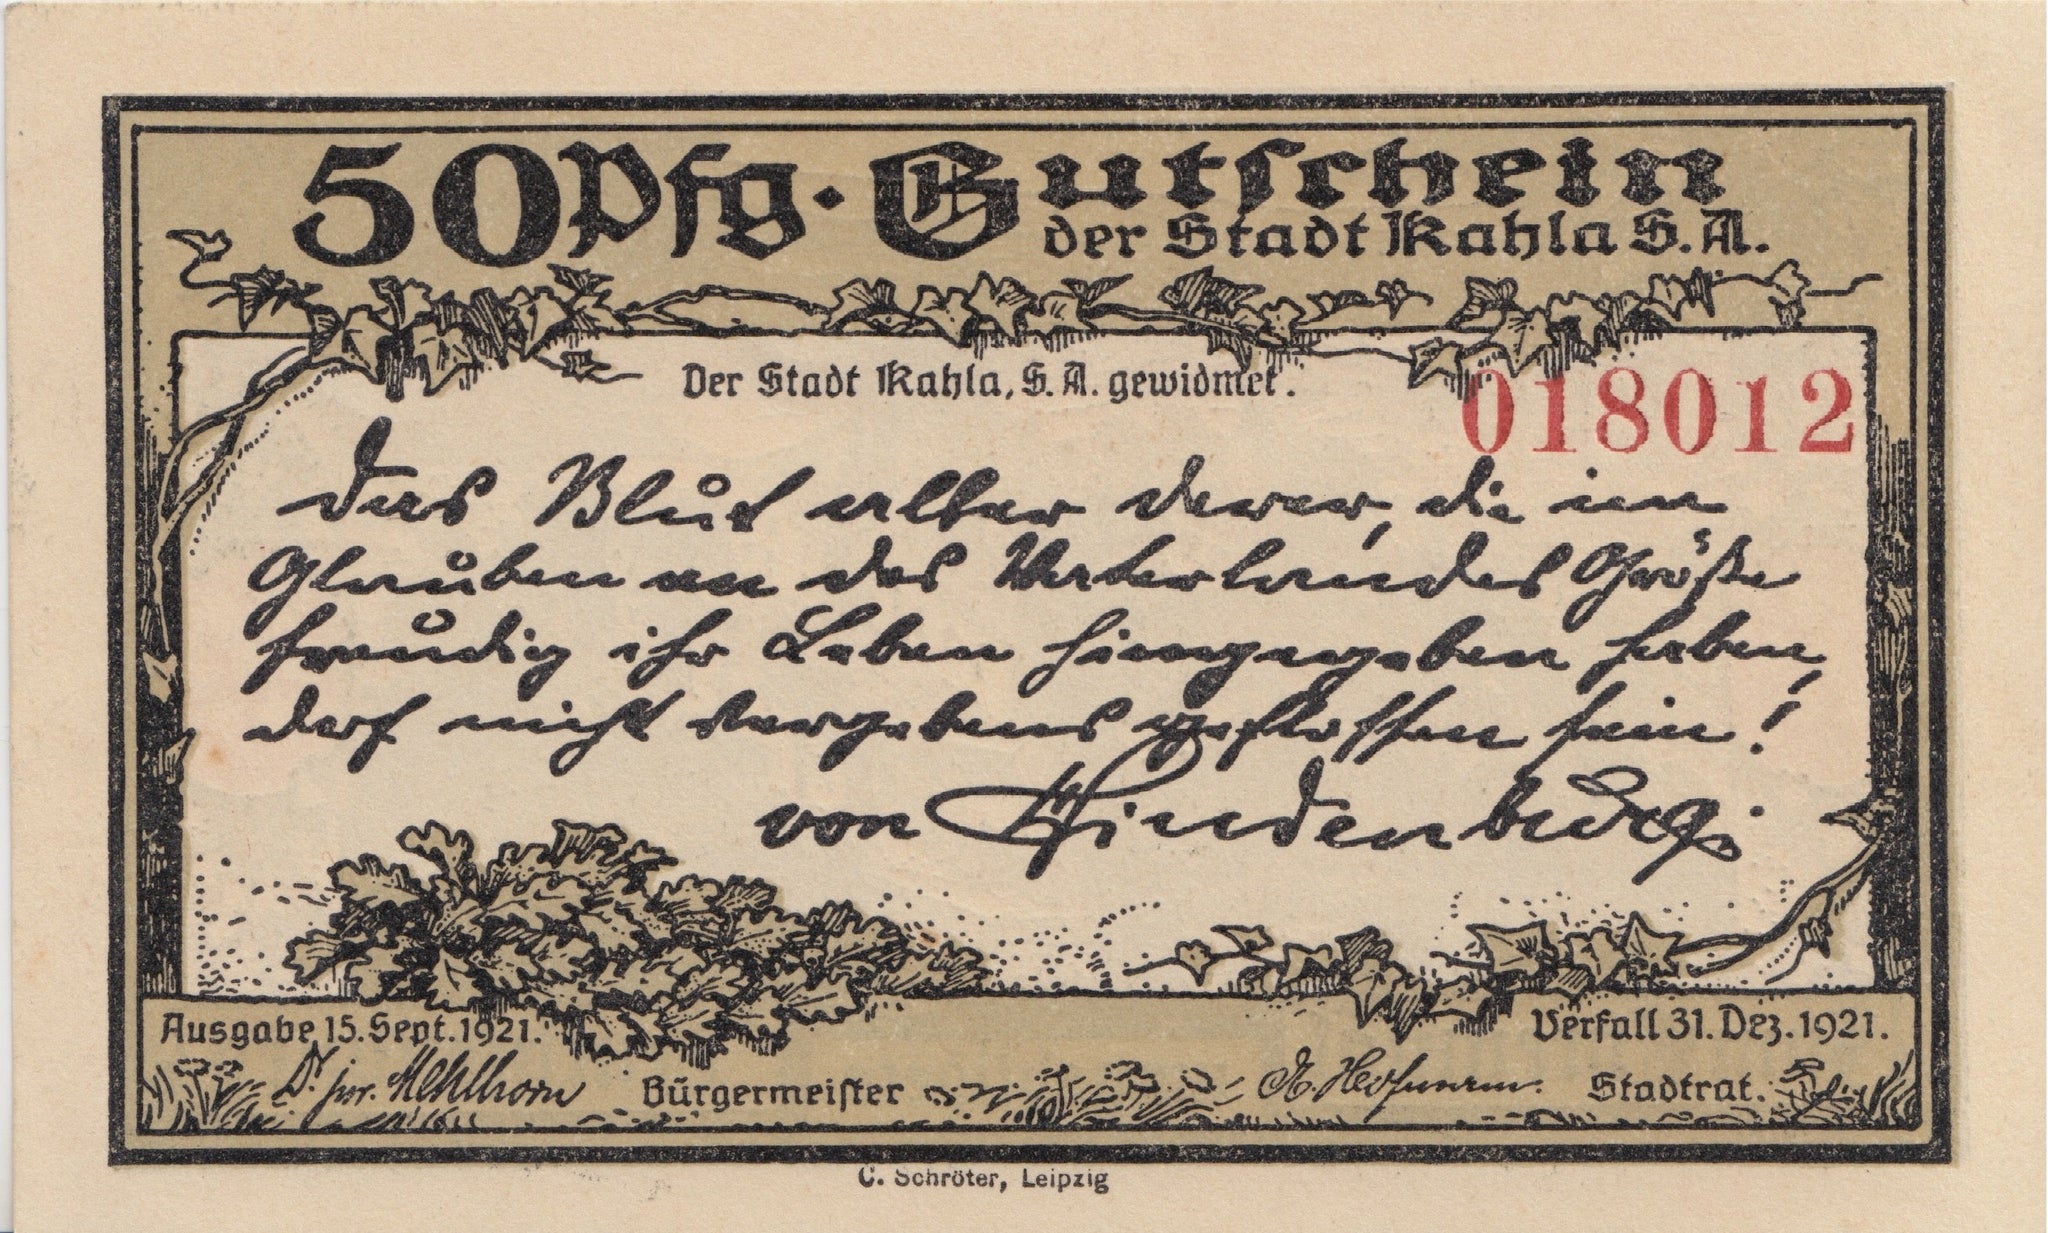 50 Pfg. Gutschein
der Stadt Kahla S. A.
Der Stadt Kahla, S. A. gewidmet.
018012
Das Blut aller derer, die im
Glauben an des Vaterlandes Größe
freudig ihr Leben hingegeben haben,
darf nicht vergebens geflossen sein!
von Hindenburg.
Ausgabe 15. Sept. 1921.
Verfall 31. Dez. 1921.
Dr. jur. Mehlhorn Bürgermeister
Stadtrat.
C. Schröter, Leipzig